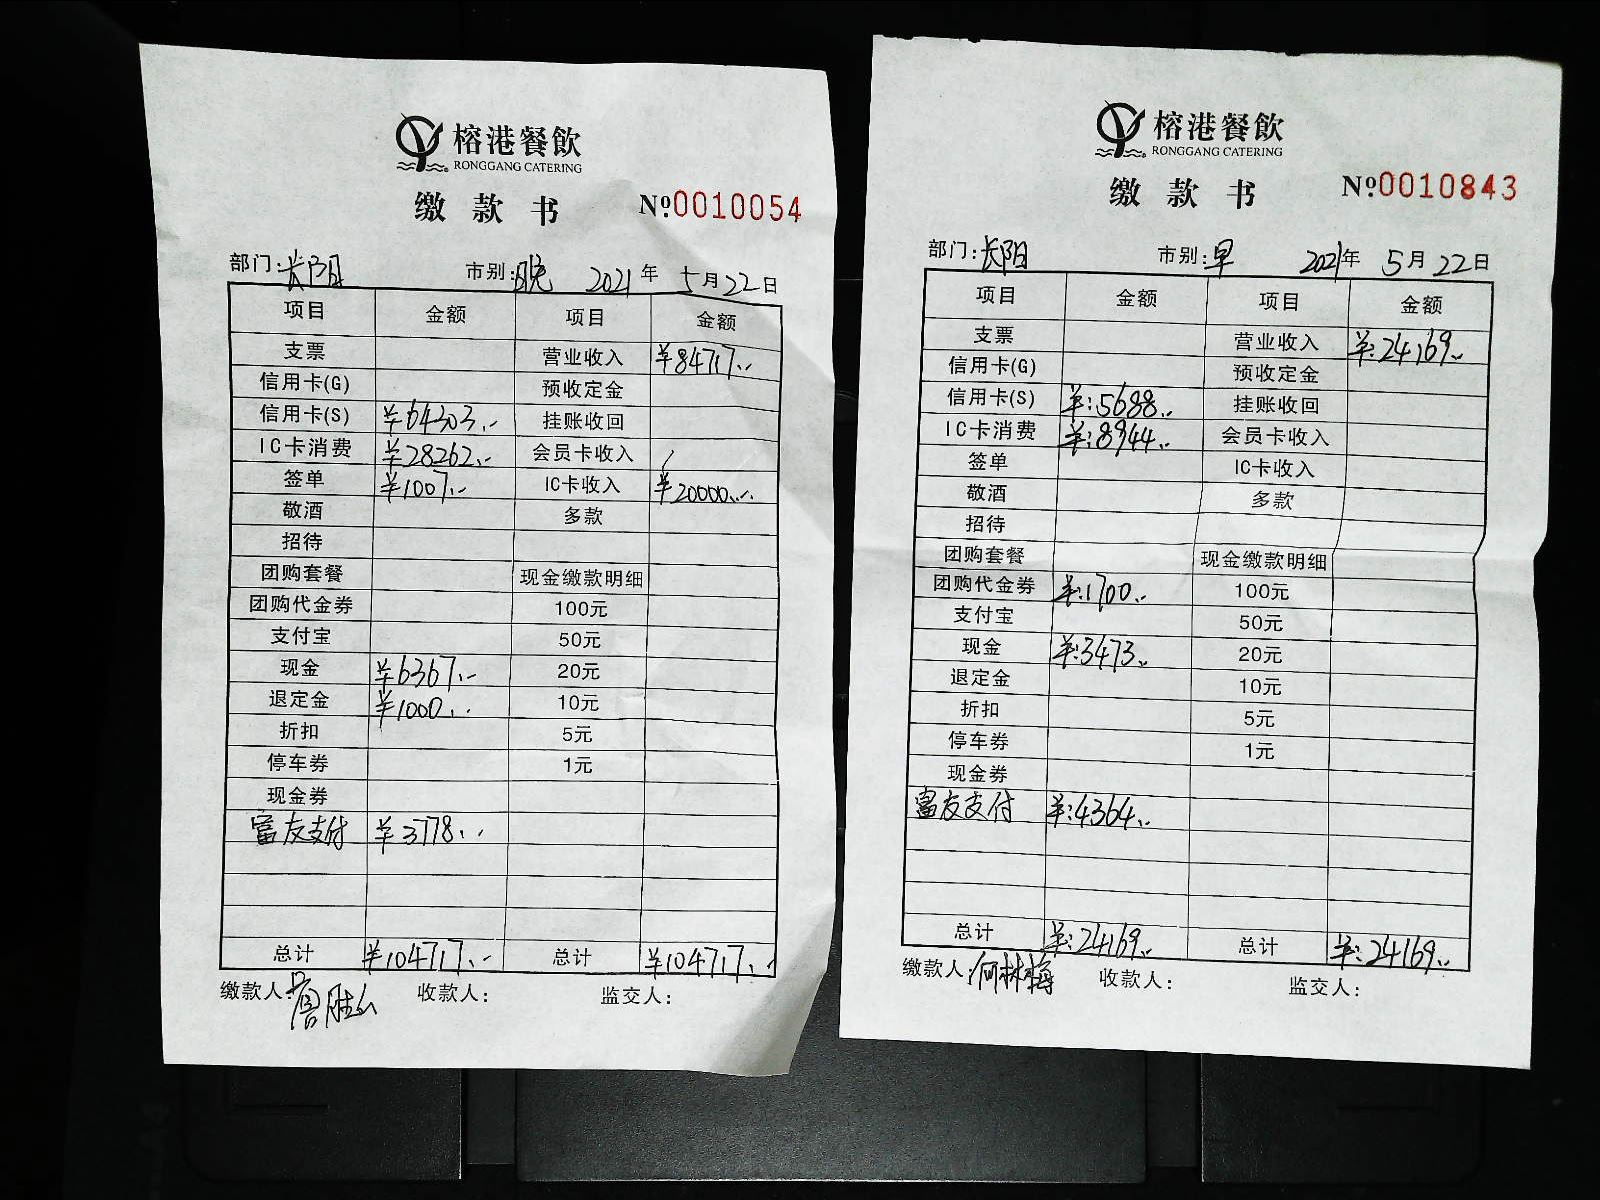 榕港餐飲
RONGGANG CATERING
缴款书 №0010054
部门:长阳 市别:晚 2021年5月22日
项目 金额 项目 金额
支票 营业收入 ¥84717.-
信用卡(G) 预收定金
信用卡(S) ¥64303.- 挂账收回
IC卡消费 ¥28262.- 会员卡收入 /
签单 ¥1007.- IC卡收入 ¥20000.-
敬酒 多款
招待
团购套餐 现金缴款明细
团购代金券 100元
支付宝 50元
现金 ¥6367.- 20元
退定金 ¥1000.- 10元
折扣 5元
停车券 1元
现金券
富友支付 ¥3778.-
总计 ¥104717.- 总计 ¥104717.-
缴款人: 收款人: 监交人:
榕港餐飲
RONGGANG CATERING
缴款书 №0010843
部门:长阳 市别:早 2021年5月22日
项目 金额 项目 金额
支票 营业收入 ¥:24169.-
信用卡(G) 预收定金
信用卡(S) ¥:5688.- 挂账收回
IC卡消费 ¥:8944.- 会员卡收入
签单 IC卡收入
敬酒 多款
招待
团购套餐 现金缴款明细
团购代金券 ¥:1700.- 100元
支付宝 50元
现金 ¥:3473.- 20元
退定金 10元
折扣 5元
停车券 1元
现金券
富友支付 ¥:4364.-
总计 ¥:24169.- 总计 ¥:24169.-
缴款人:何林梅 收款人: 监交人: